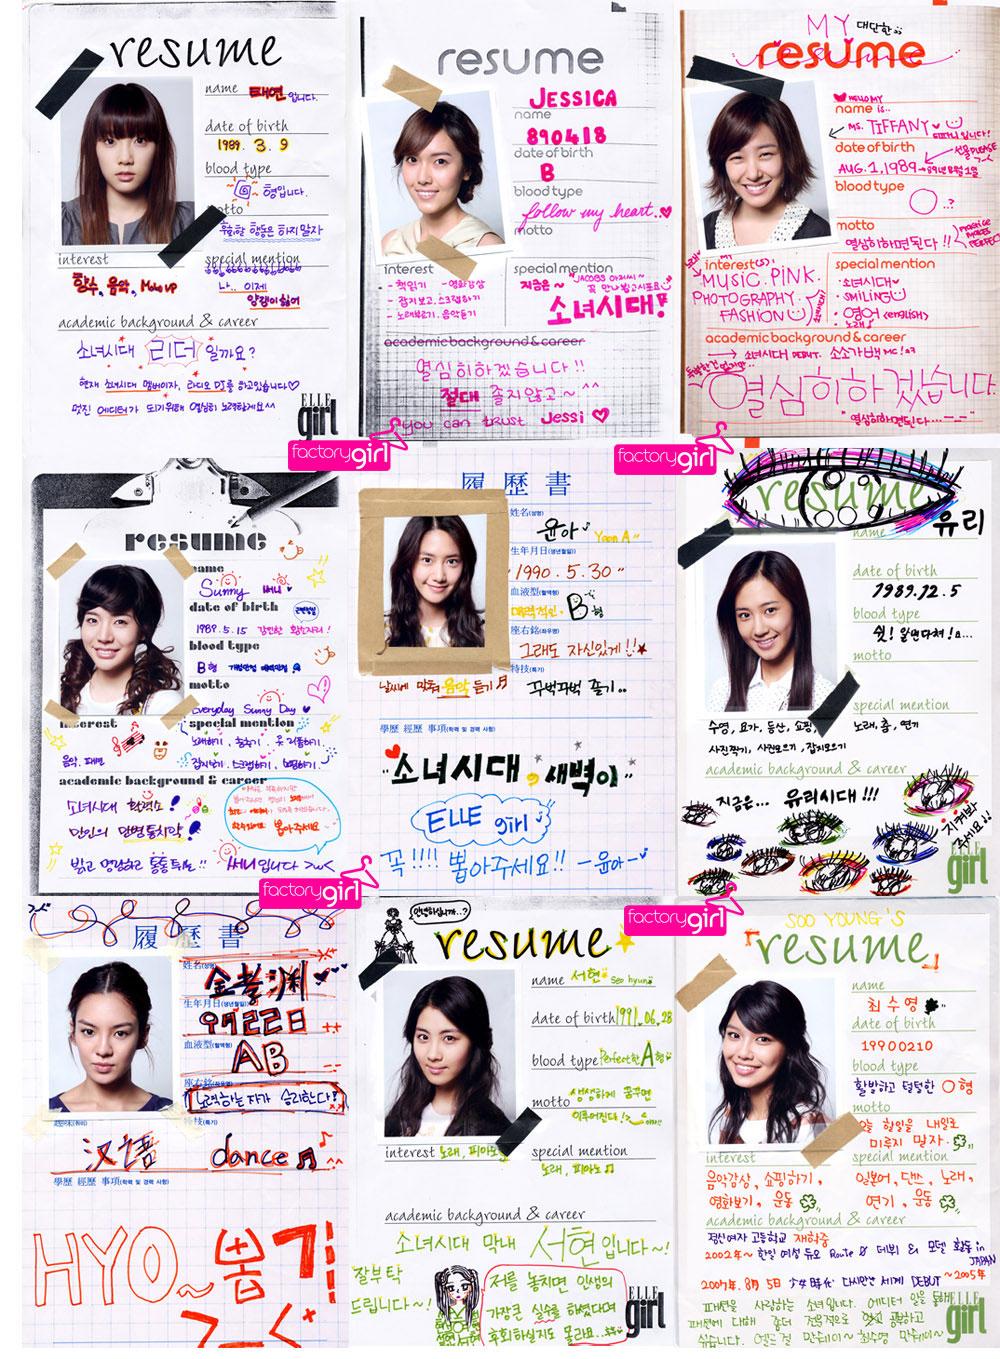 resume
name 태연입니다.
date of birth
1989. 3. 9
blood type
형입니다.
motto
interest
special mention
향수, 음악, Make up
나.. 이제
academic background & career
소녀시대 리더 일까요?
현재 소녀시대 멤버이자, 라디오 DJ를 하고있습니다♡
멋진 에디터가 되기위해 열심히 노력할게요^^
ELLE
girl
resume
JESSICA
name
890418
date of birth
B
blood type
follow my heart..♡
motto
interest
special mention
- 책읽기 - 영화감상
- 잡지보고, 스크랩하기
- 노래부르기, 음악듣기
지금은~
소녀시대!
academic background & career
열심히하겠습니다!!
절대 졸지않고~^^
you can trust Jessi ♡
factorygirl
MY 대단한
resume
HELLO MY
name is..
MS. TIFFANY
티파니입니다!
date of birth
선물PLEASE
AUG. 1, 1989 → 89년 8월 1일
blood type
O..?
motto
열심히하면된다!!
PRACTICE MAKES PERFECT
MY
interest(s):
special mention
MUSIC. PINK.
PHOTOGRAPHY.
FASHION
· 소녀시대
· SMILING
· 영어 <english>
· 노래
academic background & career
→ 소녀시대 DEBUT. 소소가백 MC!
열심히하겠습니다.
"열심히하면된다....
factorygirl
resume
name
Sunny 써니
date of birth
1989. 5. 15
blood type
B형
motto
Everyday Sunny Day ♥
interest
special mention
음악, 패션
academic background & career
소녀시대 활력소!
만인의 만병통치약!
밝고 명랑하고 통통튀는!! 써니입니다
뽑아주세요~
履歷書
姓名(성명)
윤아 Yoon A
生年月日(생년월일)
"1990. 5. 30"
血液型(혈액형)
매력적인 B형
座右銘(좌우명)
그래도 자신있게!!★
特技(특기)
날씨에 맞춰 음악 듣기♬ 꾸벅꾸벅 졸기..
學歷 經歷 事項(학력 및 경력 사항)
"소녀시대, 새벽이"
ELLE girl
꼭!!!! 뽑아주세요!! -윤아-
factorygirl
resume
유리
name
date of birth
1989. 12. 5
blood type
쉿! 알면다쳐!
motto
special mention
수영, 요가, 등산, 쇼핑,
노래, 춤, 연기
사진찍기, 사진모으기, 잡지모으기
academic background & career
지금은... 유리시대!!!
지켜봐
주세요!!
ELLE
girl
履歷書
姓名(성명)
金孝渊
生年月日(생년월일)
血液型(혈액형)
AB
座右銘(좌우명)
노력하는자가 승리한다!
特技(특기)
汉语 dance♬
學歷 經歷 事項(학력 및 경력 사항)
HYO~뽑기!!
안녕하십니까..?
resume
name 서현 Seo hyun
date of birth 1991. 06. 28
blood type Perfect한 A형
motto 생생하게 꿈꾸면
이루어진다!
interest 노래, 피아노
special mention
노래, 피아노♬
academic background & career
소녀시대 막내 서현입니다~!
잘부탁
드립니다~!
저를 놓치면 인생의
가장큰 실수를 하셨다며
후회하실지도 몰라요..
ELLE
girl
factorygirl
SOO YOUNG'S
resume
name
최수영
date of birth
19900210
blood type
활발하고 털털한 O형
motto
오늘 할일을 내일로
미루지 말자.
interest
special mention
음악감상, 쇼핑하기,
영화보기, 운동
일본어, 댄스, 노래,
연기, 운동
academic background & career
정신여자 고등학교 재학중
2002年~ 한일 여성 듀오 Route 0 데뷔 & 모델 활동 in JAPAN
~2005年
2007年 8月 5日 少女時代 다시만난 세계 DEBUT
패션을 사랑하는 소녀입니다. 에디터 일을 통해
패션에 대해 좀더 전문적으로 알고 공부하고
싶습니다. 엘르 걸 만쉐이~ 최수영 만쉐이~
ELLE
girl
factorygirl